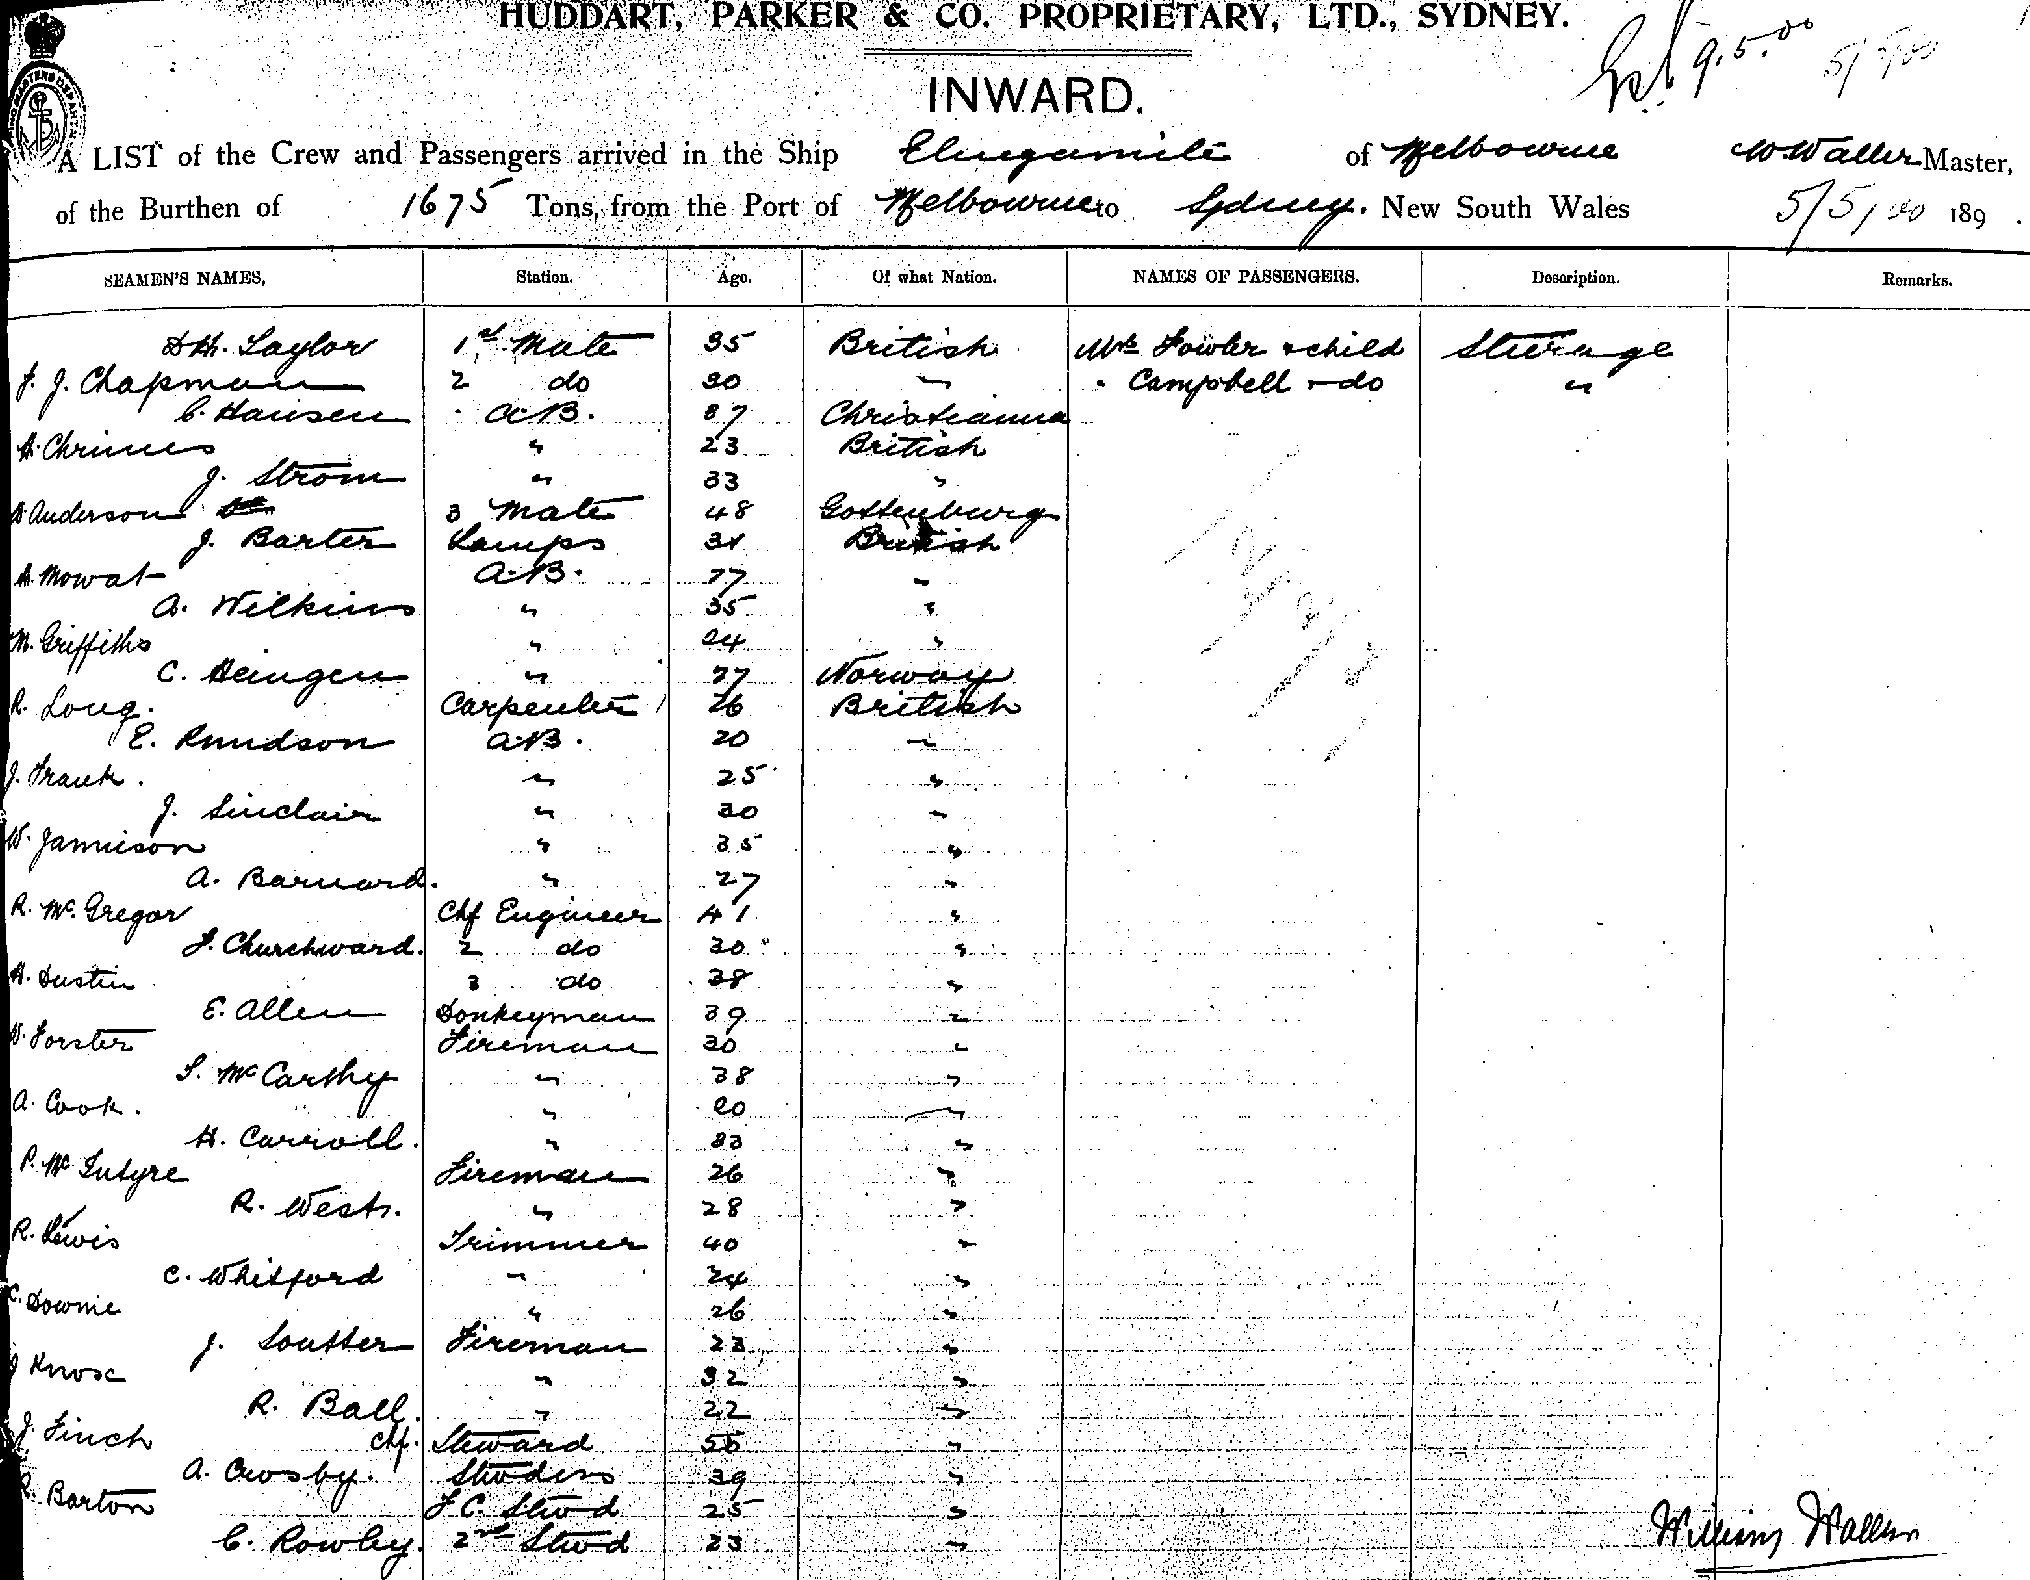 HUDDART, PARKER & CO. PROPRIETARY, LTD., SYDNEY.
9.5.00 5/5/00
INWARD.
A LIST of the Crew and Passengers arrived in the Ship Elingamite of Melbourne W Waller Master,
of the Burthen of 1675 Tons, from the Port of Melbourne to Sydney. New South Wales 5/5/00 189 .
SEAMEN'S NAMES, Station. Age. Of what Nation. NAMES OF PASSENGERS. Description. Remarks.
D H. Taylor 1st Mate 35 British Mrs Fowler & child Steerage
F. J. Chapman 2 do 30 " " Campbell & do "
C. Hansen A.B. 37 Christianna
H. Chrimes " 23 British
J. Strom " 33 "
A Anderson 3 Mate 48 Gottenburg
J. Barter Lamps 31 British
A. Mowat A.B. 27 "
A. Wilkins " 35 "
M. Griffiths " 24 "
C. Heingen " 27 Norway
R. Long. Carpenter 26 British
E. Knudson A.B. 20 "
J. Frank. " 25 "
J. Sinclair " 30 "
W. Jamieson " 35 "
A. Barnard. " 27 "
R. McGregor Chf Engineer 41 "
F. Churchward. 2 do 30 "
H. Dustin 3 do 38 "
E. Allen Donkeyman 39 "
W. Forster Fireman 30 "
S. McCarthy " 38 "
A. Cook. " 20 "
H. Carroll. " 33 "
P. McIntyre Fireman 26 "
R. West. " 28 "
R. Lewis Trimmer 40 "
C. Whitford " 24 "
C. Downie " 26 "
J. Soutter Fireman 23 "
J Knox " 32 "
R. Ball. " 22 "
J. Finch Chf. Steward 55 "
A. Crosby. Stwdess 39 "
R. Barton F.C. Stwd 25 "
C. Rowley. 2nd Stwd 23 "
William Waller